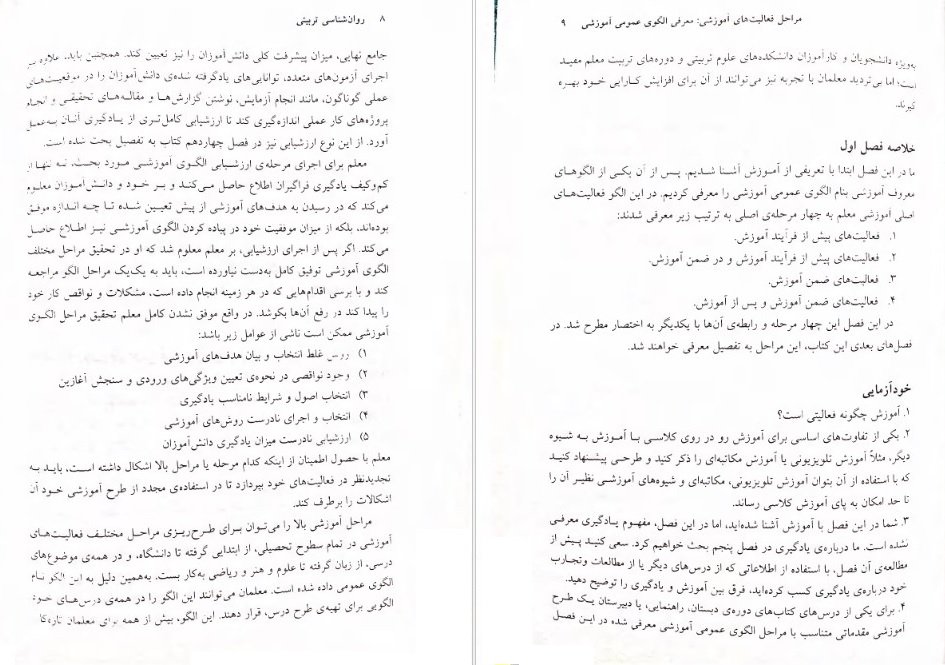 ۸ روان‌شناسی تربیتی
جامع نهایی، میزان پیشرفت کلی دانش‌آموزان را نیز تعیین کند. همچنین باید، علاوه بر
اجرای آزمون‌های متعدد، توانایی‌های یادگرفته شده‌ی دانش‌آموزان را در موقعیت‌های
عملی گوناگون، مانند انجام آزمایش، نوشتن گزارش‌ها و مقاله‌های تحقیقی و انجام
پروژه‌های کار عملی اندازه‌گیری کند تا ارزشیابی کامل‌تری از یادگیری آنان به‌عمل
آورد. از این نوع ارزشیابی نیز در فصل چهاردهم کتاب به تفصیل بحث شده است.
معلم برای اجرای مرحله‌ی ارزشیابی الگوی آموزشی مورد بحث، نه تنها از
کم‌وکیف یادگیری فراگیران اطلاع حاصل می‌کند و بر خود و دانش‌آموزان معلوم
می‌کند که در رسیدن به هدف‌های آموزشی از پیش تعیین شده تا چه اندازه موفق
بوده‌اند، بلکه از میزان موفقیت خود در پیاده کردن الگوی آموزشی نیز اطلاع حاصل
می‌کند. اگر پس از اجرای ارزشیابی، بر معلم معلوم شد که او در تحقیق مراحل مختلف
الگوی آموزشی توفیق کامل به‌دست نیاورده است، باید به یک‌یک مراحل الگو مراجعه
کند و با برسی اقدام‌هایی که در هر زمینه انجام داده است، مشکلات و نواقص کار خود
را پیدا کند در رفع آن‌ها بکوشد. در واقع موفق نشدن کامل معلم تحقیق مراحل الگوی
آموزشی ممکن است ناشی از عوامل زیر باشد:
۱) روس غلط انتخاب و بیان هدف‌های آموزشی
۲) وجود نواقصی در نحوه‌ی تعیین ویژگی‌های ورودی و سنجش آغازین
۳) انتخاب اصول و شرایط نامناسب یادگیری
۴) انتخاب و اجرای نادرست روش‌های آموزشی
۵) ارزشیابی نادرست میزان یادگیری دانش‌آموزان
معلم با حصول اطمینان از اینکه کدام مرحله یا مراحل بالا اشکال داشته است، باید به
تجدیدنظر در فعالیت‌های خود بپردازد تا در استفاده‌ی مجدد از طرح آموزشی خود آن
اشکالات را برطرف کند.
مراحل آموزشی بالا را می‌توان برای طرح‌ریزی مراحل مختلف فعالیت‌های
آموزشی در تمام سطوح تحصیلی، از ابتدایی گرفته تا دانشگاه، و در همه‌ی موضوع‌های
درسی، از زبان گرفته تا علوم و هنر و ریاضی به‌کار بست. به‌همین دلیل به این الگو نام
الگوی عمومی داده شده است. معلمان می‌توانند این الگو را در همه‌ی درس‌های خود
الگویی برای تهیه‌ی طرح درس، قرار دهند. این الگو، بیش از همه برای معلمان تازه‌کا
مراحل فعالیت‌های آموزشی: معرفی الگوی عمومی آموزشی ۹
به‌ویژه دانشجویان و کارآموزان دانشکده‌های علوم تربیتی و دوره‌های تربیت معلم مفید
است؛ اما بی‌تردید معلمان با تجربه نیز می‌توانند از آن برای افزایش کارایی خود بهره
گیرند.
خلاصه فصل اول
ما در این فصل ابتدا با تعریفی از آموزش آشنا شدیم. پس از آن یکی از الگوهای
معروف آموزشی بنام الگوی عمومی آموزشی را معرفی کردیم. در این الگو فعالیت‌های
اصلی آموزشی معلم به چهار مرحله‌ی اصلی به ترتیب زیر معرفی شدند:
۱. فعالیت‌های پیش از فرآیند آموزش.
۲. فعالیت‌های پیش از فرآیند آموزش و در ضمن آموزش.
۳ فعالیت‌های ضمن آموزش.
۴. فعالیت‌های ضمن آموزش و پس از آموزش.
در این فصل این چهار مرحله و رابطه‌ی آن‌ها با یکدیگر به اختصار مطرح شد. در
فصل‌های بعدی این کتاب، این مراحل به تفصیل معرفی خواهند شد.
خودآزمایی
۱. آموزش چگونه فعالیتی است؟
۲. یکی از تفاوت‌های اساسی برای آموزش رو در روی کلاسی با آموزش به شیوه
دیگر، مثلاً آموزش تلویزیونی یا آموزش مکاتبه‌ای را ذکر کنید و طرحی پیشنهاد کنید
که با استفاده از آن بتوان آموزش تلویزیونی، مکاتبه‌ای و شیوه‌های آموزشی نظیر آن را
تا حد امکان به پای آموزش کلاسی رساند.
۳. شما در این فصل با آموزش آشنا شده‌اید، اما در این فصل، مفهوم یادگیری معرفی
نشده است. ما درباره‌ی یادگیری در فصل پنجم بحث خواهیم کرد. سعی کنید پیش از
مطالعه‌ی آن فصل، با استفاده از اطلاعاتی که از درس‌های دیگر یا از مطالعات وتجارب
خود درباره‌ی یادگیری کسب کرده‌اید، فرق بین آموزش و یادگیری را توضیح دهید.
۴. برای یکی از درس‌های کتاب‌های دوره‌ی دبستان، راهنمایی، یا دبیرستان یک طرح
آموزشی مقدماتی متناسب با مراحل الگوی عمومی آموزشی معرفی شده در این فصل